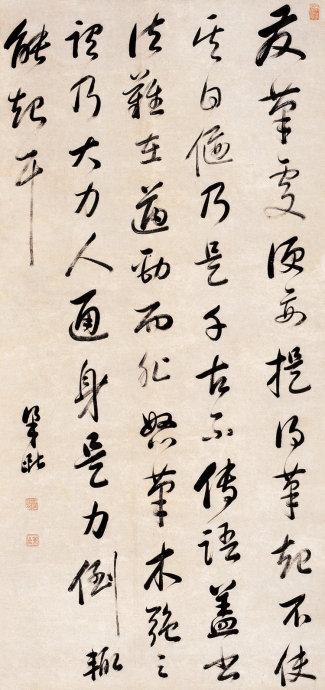 發筆處便要提得筆起不使
其自偃乃是千古不傳語蓋書
法難在遒勁而非怒筆木強之
謂乃大力人通身是力倒輒
能起耳